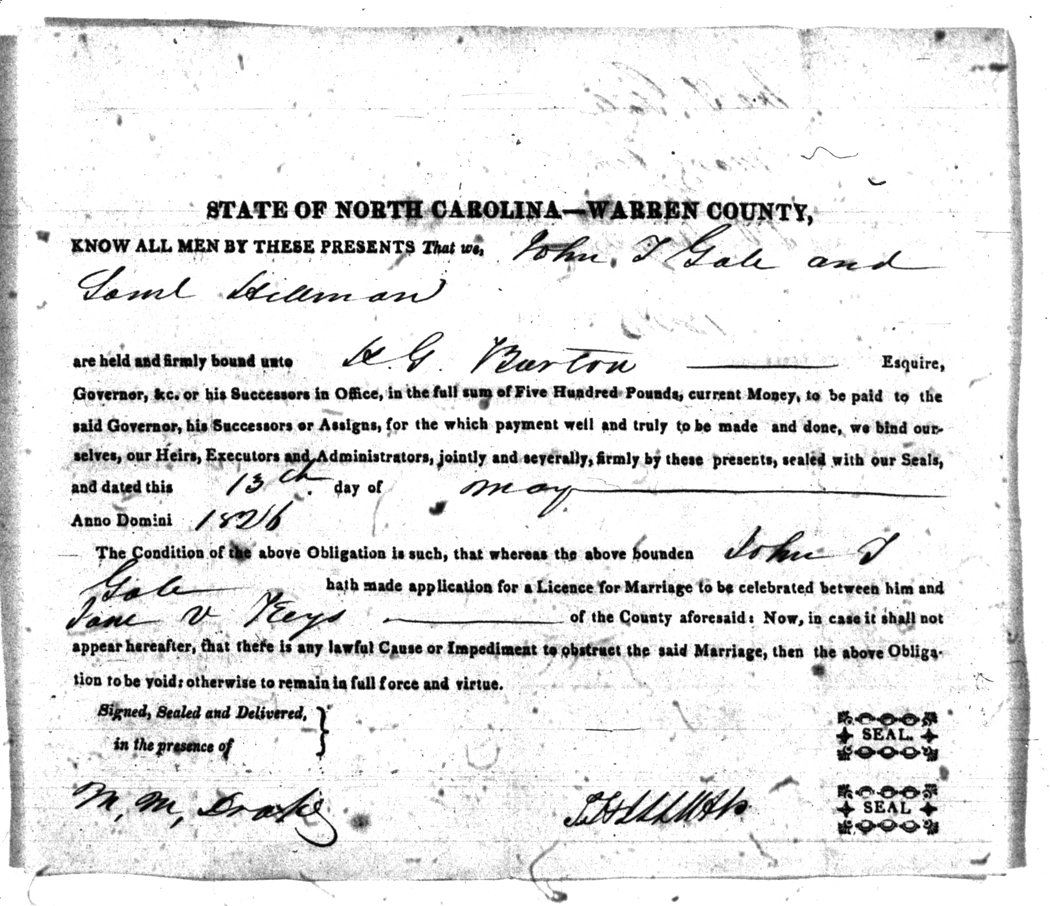 STATE OF NORTH CAROLINA—WARREN COUNTY,
KNOW ALL MEN BY THESE PRESENTS That we, John T Gale and
Saml Hillman
are held and firmly bound unto H. G. Burton Esquire,
Governor, &c. or his Successors in Office, in the full sum of Five Hundred Pounds, current Money, to be paid to the
said Governor, his Successors or Assigns, for the which payment well and truly to be made and done, we bind our-
selves, our Heirs, Executors and Administrators, jointly and severally, firmly by these presents, sealed with our Seals,
and dated this 13th day of may
Anno Domini 1826
The Condition of the above Obligation is such, that whereas the above bounden John T
Gale hath made application for a Licence for Marriage to be celebrated between him and
Jane V Keys of the County aforesaid: Now, in case it shall not
appear hereafter, that there is any lawful Cause or Impediment to obstruct the said Marriage, then the above Obliga-
tion to be void: otherwise to remain in full force and virtue.
Signed, Sealed and Delivered,
in the presence of
SEAL.
M. M. Drake
SEAL